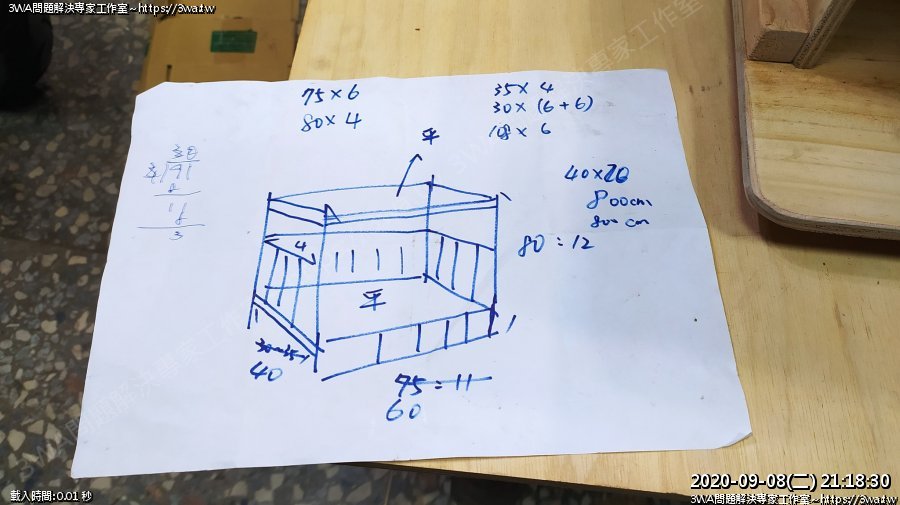 3WA問題解決專家工作室~https://3wa.tw
75 × 6
80 × 4
35 × 4
30 × (6 + 6)
108 × 6
平
40 × 20
800cm
800 cm
80 = 12
4
平
30~35
40
75 = 11
60
2020-09-08(二) 21:18:30
載入時間: 0.01 秒
3WA問題解決專家工作室~https://3wa.tw